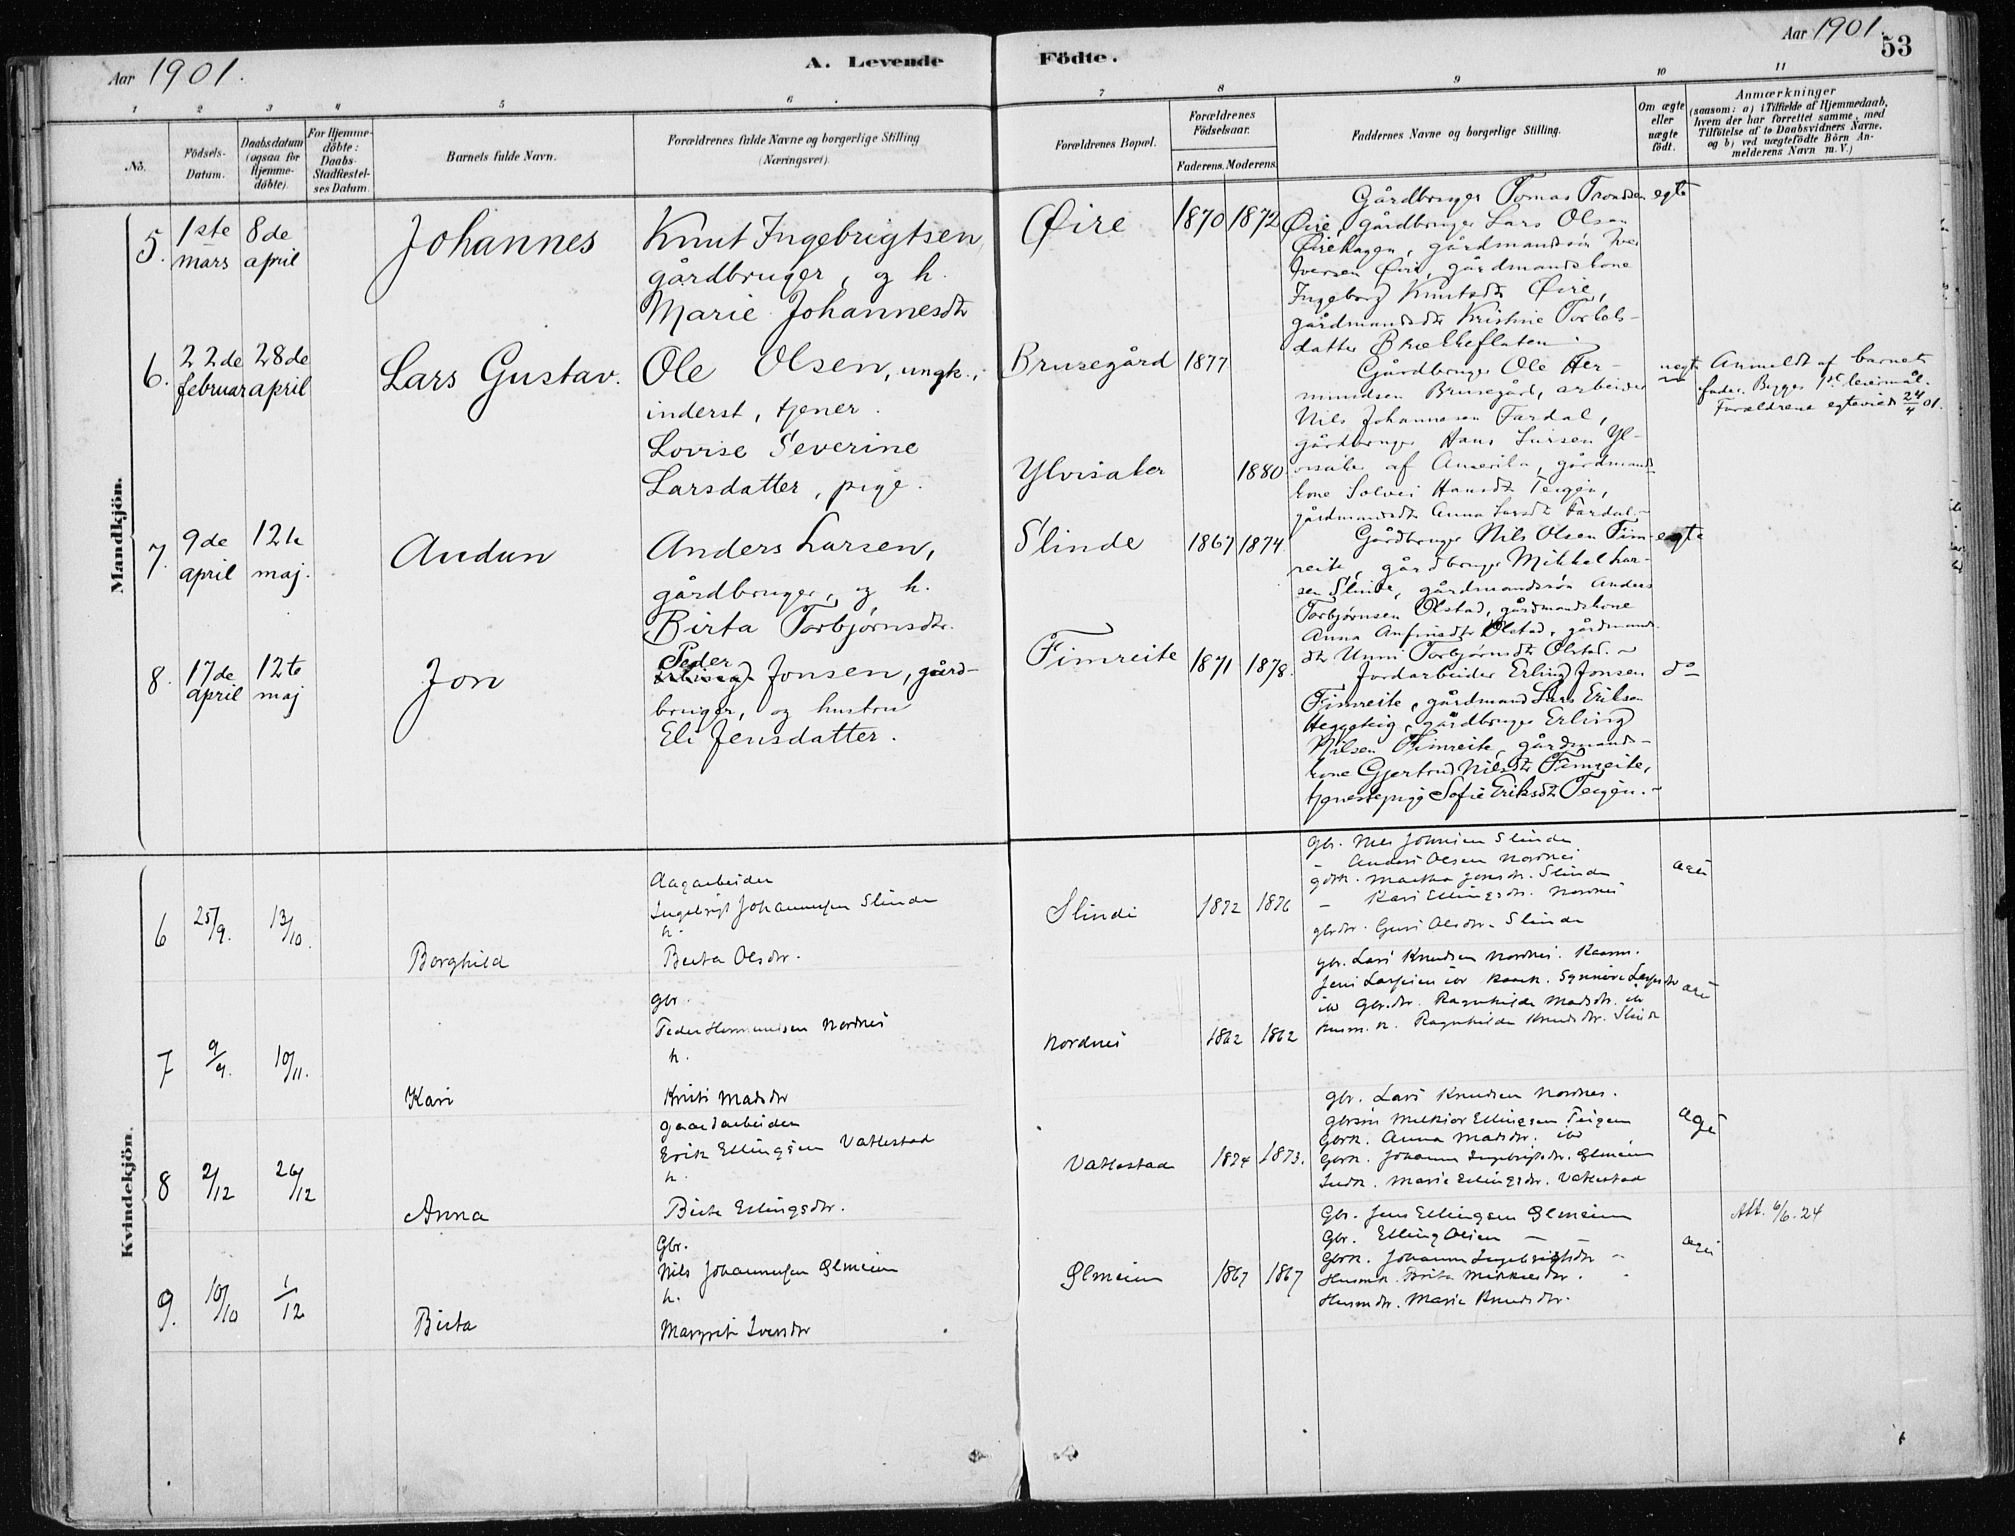 Aar 1901.
A. Levende
Födte.
Aar 1901.
53
1
2
3
4
5
6
7
8
9
10
11
No.
Födsels-
Datum.
Daabsdatum
(ogsaa for
Hjemme-
döbte).
For Hjemme-
döbte:
Daabs-
Stadfæstel-
ses Datum.
Barnets fulde Navn.
Forældrenes fulde Navne og borgerlige Stilling
(Næringsvei).
Forældrenes Bopæl.
Forældrenes
Födselsaar.
Faderens. Moderens.
Faddernes Navne og borgerlige Stilling.
Om ægte
eller
uægte
födt.
Anmærkninger
(saasom: a) i Tilfælde af Hjemmedaab,
hvem der har forrettet samme, med
Tilföielse af to Daabsvidners Navne.
og b) ved uægtefödte Börn An-
melderens Navn m. V.)
Mandkjön.
5.
1ste
mars
8de
april
Johannes
Knut Ingebrigtsen,
gårdbruger, og h.
Marie Johannesdtr
Øire
1870
1872
Gårdbruger Tomas Trondsen
Øire, gårdbruger Lars Olsen
Øirehagen, gårdmandssøn Iver
Iversen Øire, gårdmandskone
Ingeborg Knutsdtr Øire,
gårdmandsdtr Kristine Torkels-
datter Brækkefleten
egte
6.
22de
februar
28de
april
Lars Gustav.
Ole Olsen, ungk.,
inderst, tjener.
Lovise Severine
Larsdatter, pige.
Brusegård
1877
Ylvisaker
1880
Gårdbruger Ole Her-
mundsen Brusegård, arbeider
Nils Johannesen Fardal,
gårdbruger Hans Larsen Yl-
visaker af Amerika, gårdmands-
kone Solvei Hansdtr Teigen,
gårdmandsdtr Anna Larsdtr Fardal.
uegte
Anmeldt af barnets
fader. Begges 1ste leiermål.
Forældrene egteviet 24/4 01.
7.
9de
april
12te
maj.
Audun
Anders Larsen,
gårdbruger, og h.
Birta Torbjørnsdtr.
Slinde
1867
1874
Gårdbruger Nils Olsen Fim-
reite, gårdbruger Mikkel Lar-
sen Slinde, gårdmandssøn Anders
Torbjørnsen Ølstad, gårdmandskone
Anna Anfinsdtr Ølstad, gårdmands-
dtr Unni Torbjørnsdtr Ølstad.
egte
8.
17de
april
12te
maj
Jon
Peder
Jonsen, gård-
bruger, og hustru
Eli Jensdatter.
Fimreite
1871
1878.
Jordarbeider Erling Jonsen
Fimreite, gårdmand Lars Eriksen
Heggeteig, gårdbruger Erling
Nilsen Fimreite, gårdmands-
kone Gjertrud Nilsdtr Fimreite,
tjenestepige Sofie Eriksdtr Teigen.
do
Kvindekjön.
6
25/9.
13/10.
Borghild
Dagarbeider
Ingebrigt Johannesen Slinde
h.
Birta Olsdtr.
Slinde
1872
1876
gbr. Nils Johnsen Slinde
- Anders Olsen Nordnes
gdrk. Martha Jonsdtr. Slinde
- Kari Ellingsdtr. Nordnes
gbrdtr. Guri Olsdtr. Slinde
7
9/9.
10/11.
Kari
gbr.
Peder Hermundsen Nordnes
h.
Kristi Madsdtr
Nordnes
1862
1862
gbr. Lars Knudsen Nordnes.
gbr.dtr. Ragnhilda Madsdtr. ib
Husm.k. Ragnhilda Knudsdtr. Slinde
8
2/12
26/12
Anna
Gaardarbeider
Erik Ellingsen Vatlestad
h.
Birta Erlingsdtr.
Vatlestad
1874
1873.
Gbr. Lars Knudsen Nordnes.
Gbrsøn Melkior Ellingsen Teigen
Gbrk. Anna Madsdtr. ibd
Gbrk. Johanna Ingebrigtsdtr. Slmeim
Indk. Marie Erlingsdtr. Vatlestad
9.
10/10
1/12
Birta
Gbr.
Nils Johannesen
h.
Margrete Iversdtr
1867
1867
Gbr. Jens Ellingsen
Gbr. Elling Olsen -
Gbrk. Johanna Ingebrigtsdtr -
Husmk. Brita Mikkelsdtr.
Husmdtr. Marie Knudsdtr.
Att. 6/6.24